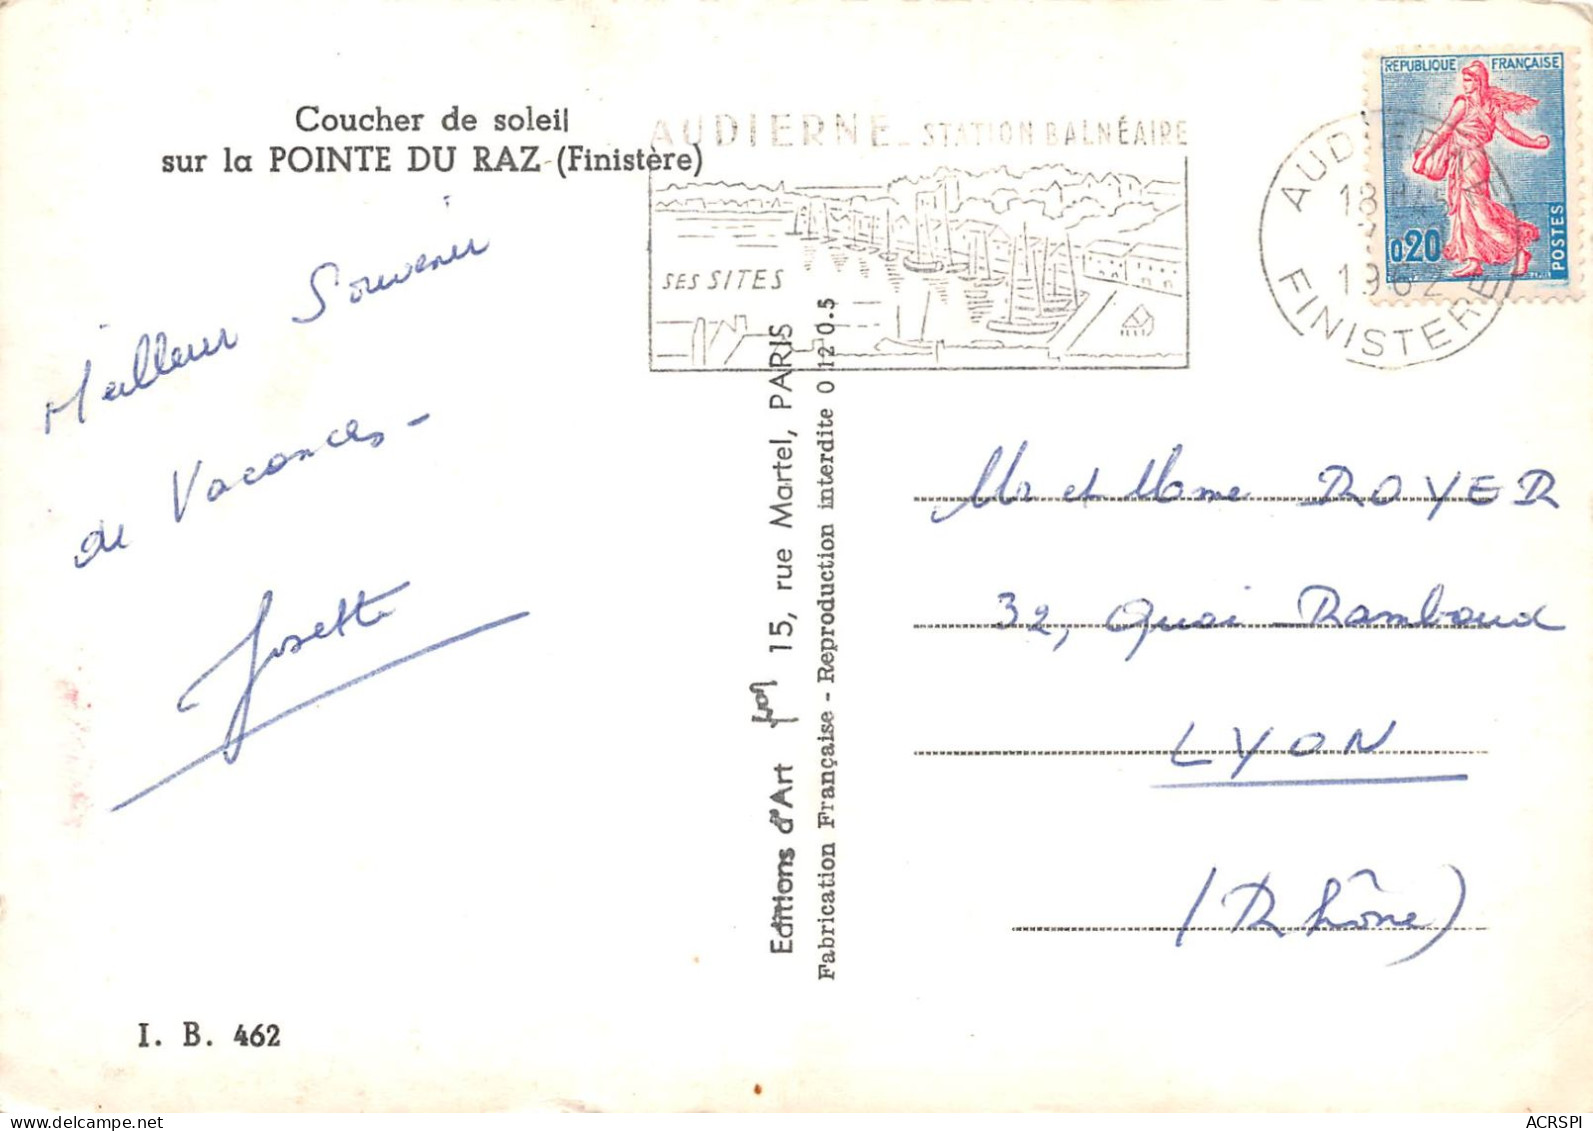 Coucher de soleil
sur la POINTE DU RAZ (Finistère)
AUDIERNE - STATION BALNÉAIRE
SES SITES
REPUBLIQUE FRANÇAISE
0,20
POSTES
AUDIERNE
18H45
1962
FINISTERE
Meilleur Souvenir
de Vacances -
Josette
Editions d'Art
15, rue Martel, PARIS
Fabrication Française - Reproduction interdite 0 12 0.5
Mr et Mme ROYER
32, Quai Rambaud
LYON
(Rhône)
I. B. 462
ACRSPI